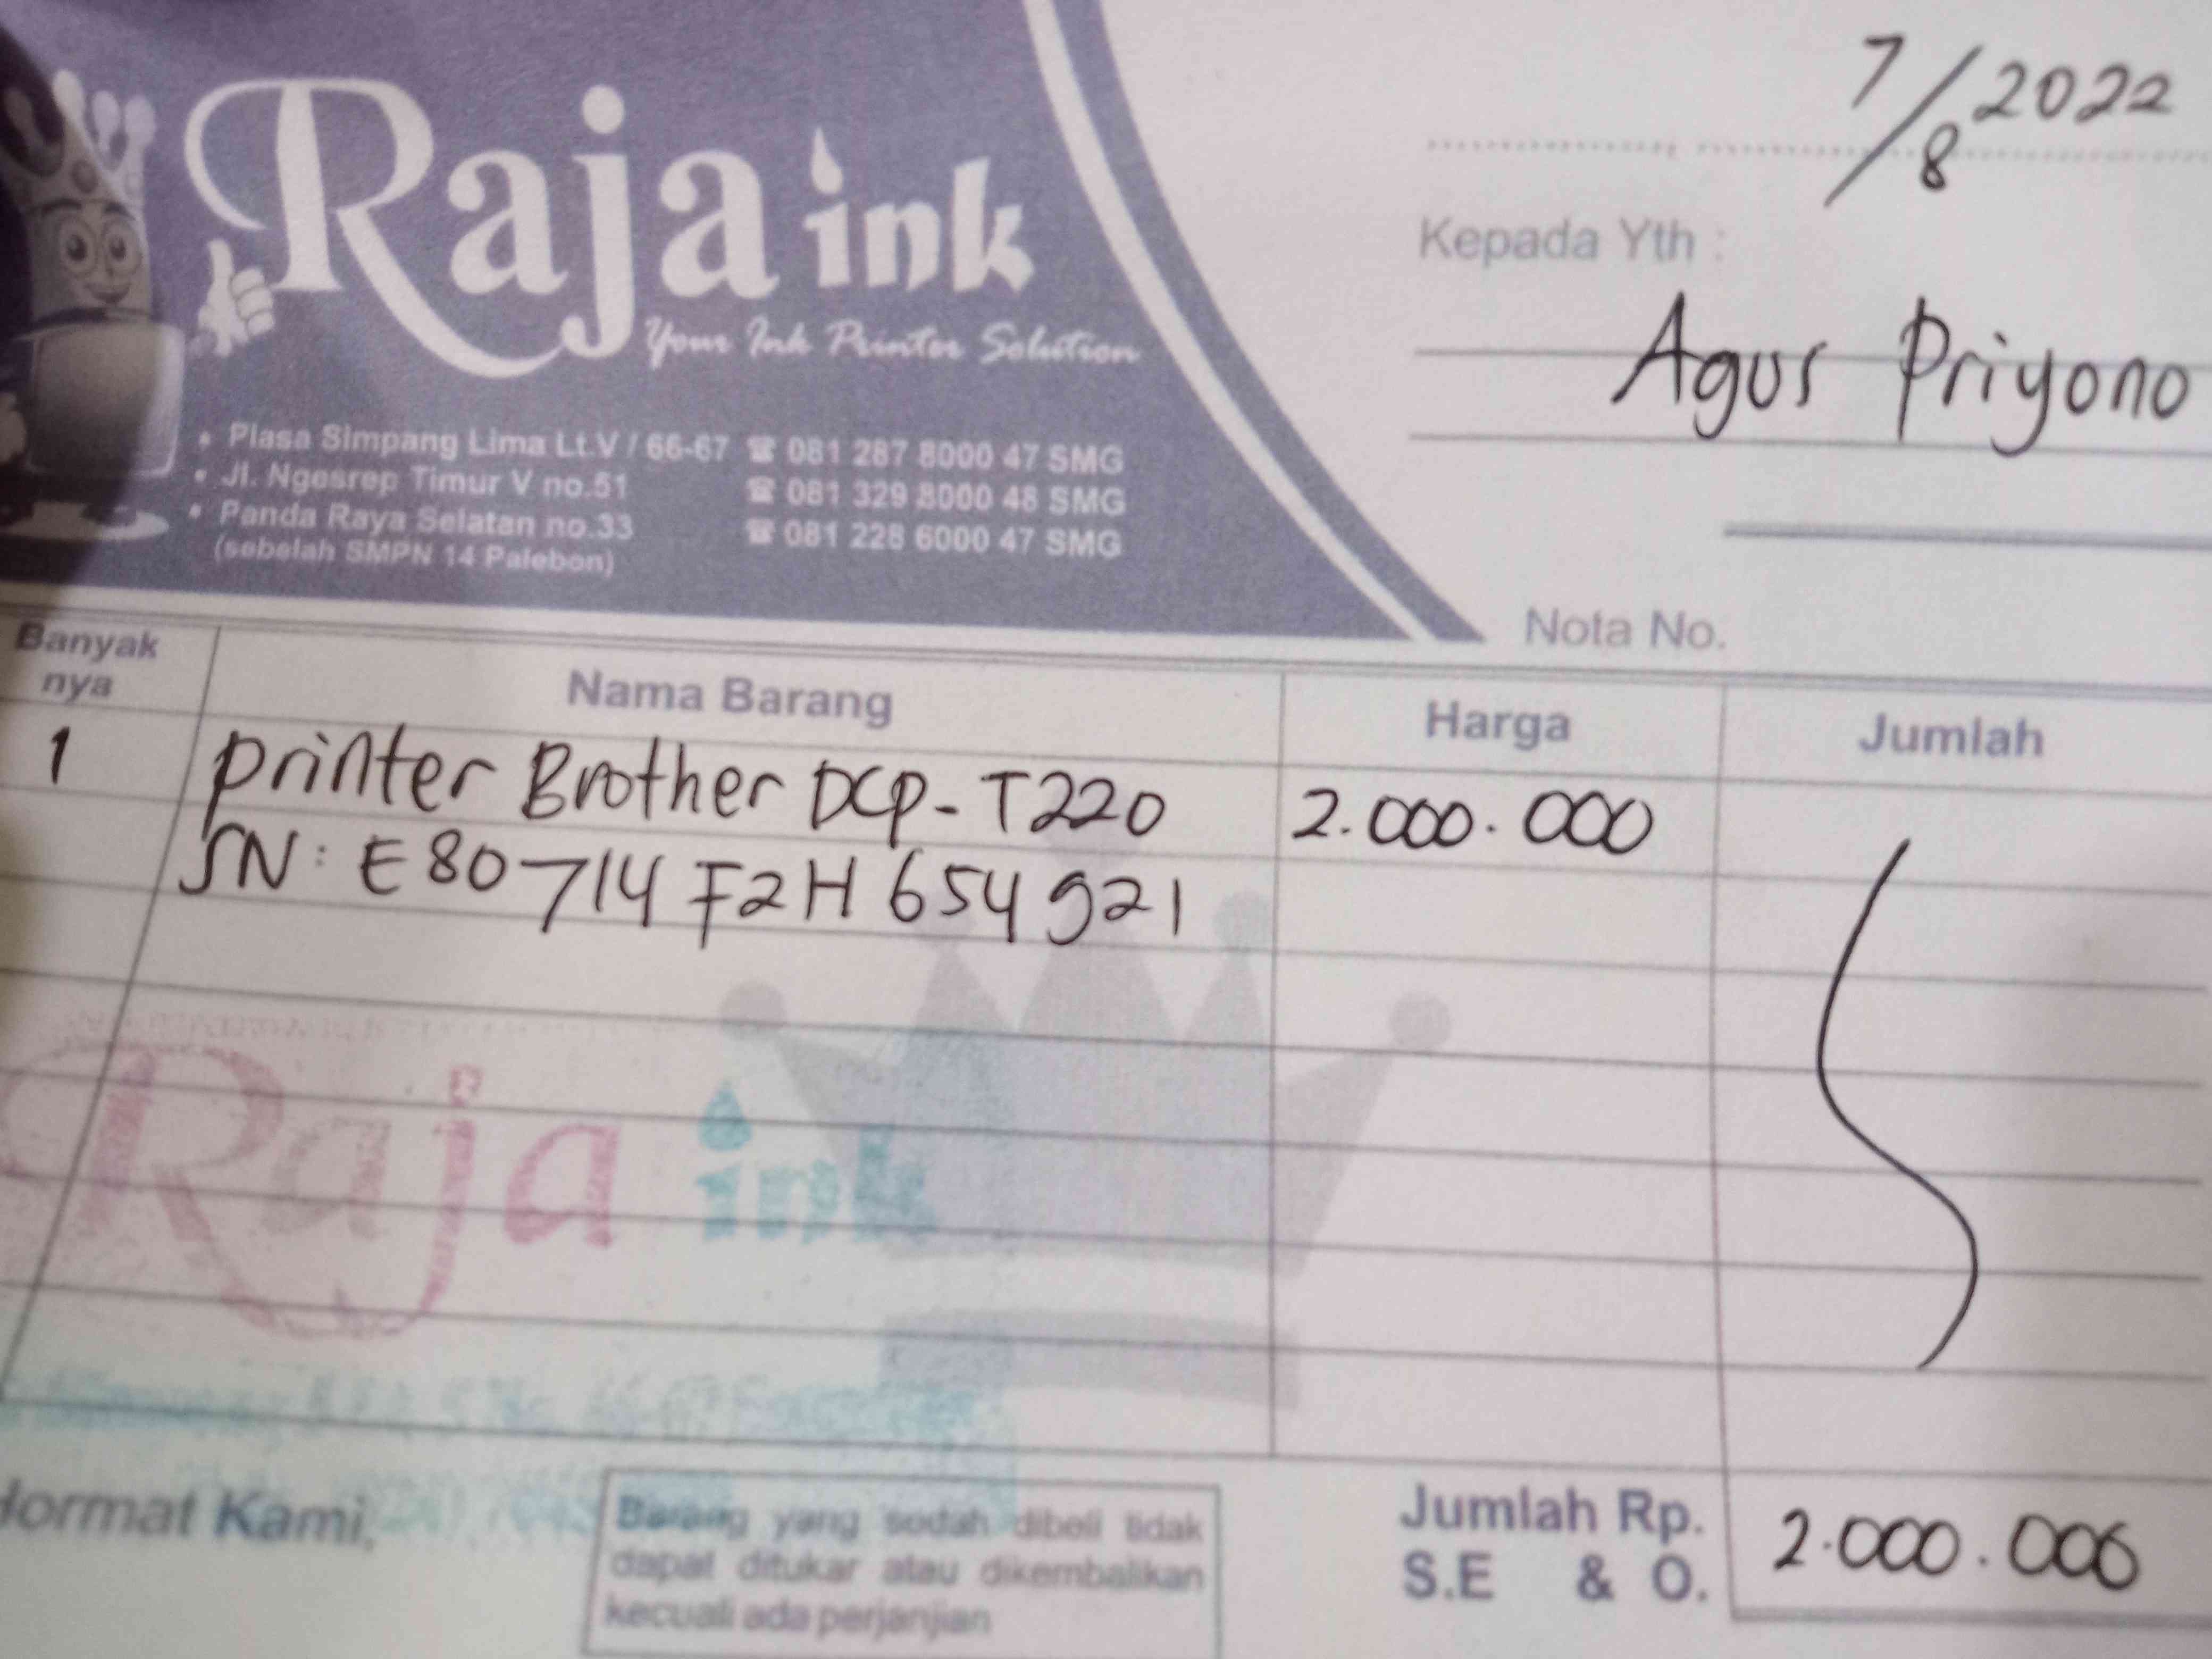 7/8 2022
Raja ink
Your Ink Printer Solution
Kepada Yth :
Agus Priyono
• Plasa Simpang Lima Lt.V / 66-67 ☎ 081 287 8000 47 SMG
• Jl. Ngesrep Timur V no.51 ☎ 081 329 8000 48 SMG
• Panda Raya Selatan no.33 ☎ 081 228 6000 47 SMG
(sebelah SMPN 14 Palebon)
Nota No.
Banyak nya Nama Barang Harga Jumlah
1 Printer Brother DCP-T220 2.000.000
SN: E80714F2H654921
Raja ink
Hormat Kami,
Barang yang sudah dibeli tidak
dapat ditukar atau dikembalikan
kecuali ada perjanjian
Jumlah Rp. 2.000.000
S.E & O.